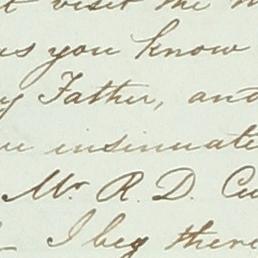 visit the
as you know
Father, and
insinuate
Mr R. D. Cu
I beg there